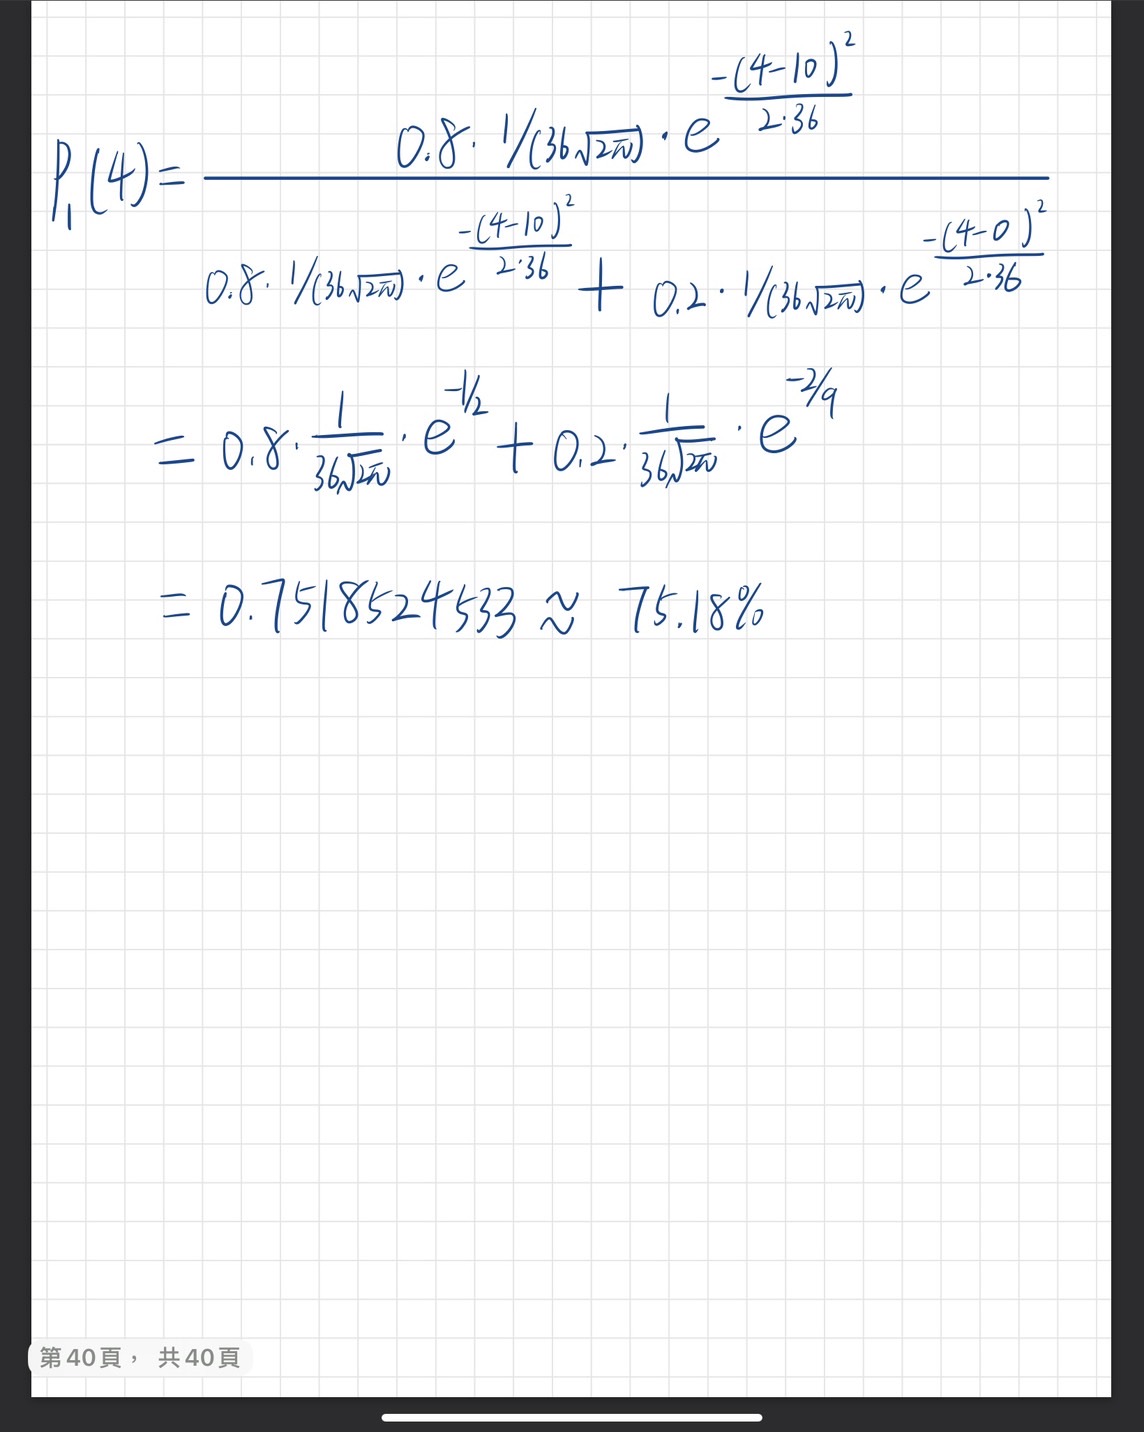 P₁(4) = (0.8 · 1/(36√2π) · e^(-(4-10)²/2·36)) / (0.8 · 1/(36√2π) · e^(-(4-10)²/2·36) + 0.2 · 1/(36√2π) · e^(-(4-0)²/2·36))
= 0.8 · 1/36√2π · e^(-1/2) + 0.2 · 1/36√2π · e^(-2/9)
= 0.7518524533 ≈ 75.18%
第40頁， 共40頁